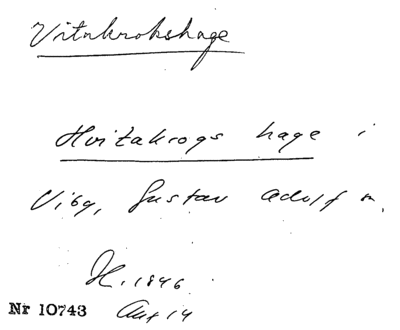 Vitakrokshage
Hvitakrogs hage i
Viby, Gustav Adolf n.
H. 1846
Nr 10743